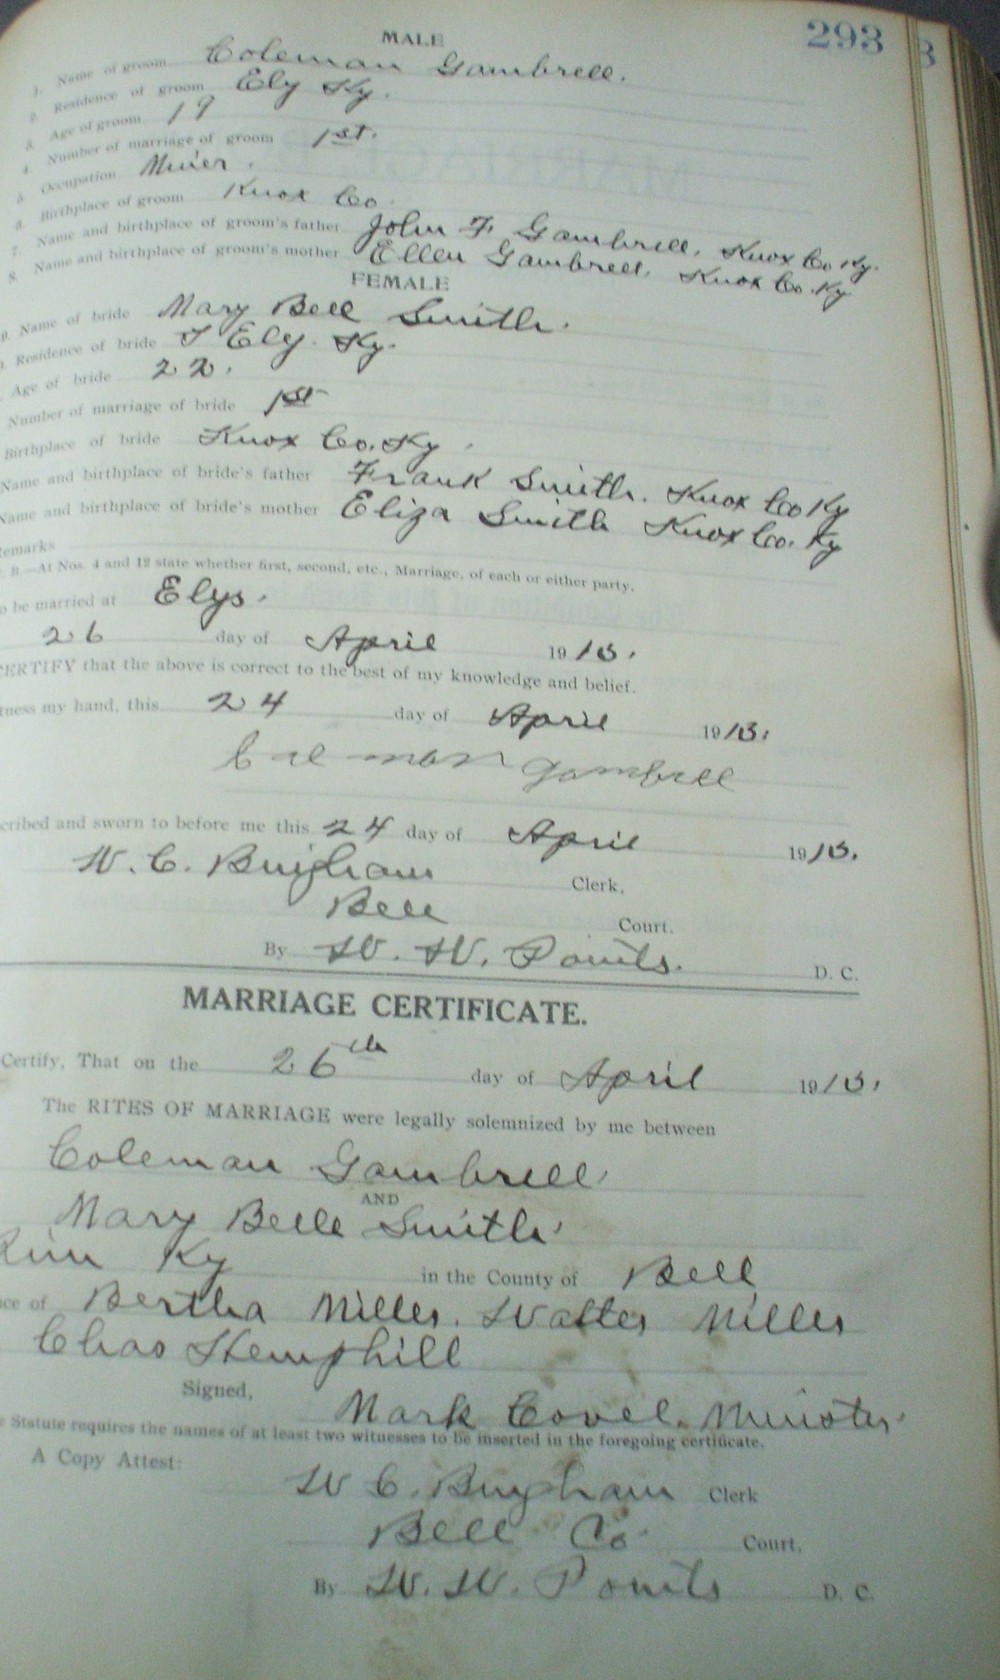 293
MALE
1. Name of groom Coleman Gambrell.
2. Residence of groom Ely Ky.
3. Age of groom 19
4. Number of marriage of groom 1st.
5. Occupation Miner.
6. Birthplace of groom Knox Co.
7. Name and birthplace of groom's father John F. Gambrell, Knox Co. Ky.
8. Name and birthplace of groom's mother Ellen Gambrell, Knox Co. Ky
FEMALE
9. Name of bride Mary Bell Smith.
Residence of bride Ely. Ky.
Age of bride 22.
Number of marriage of bride 1st
Birthplace of bride Knox Co. Ky.
Name and birthplace of bride's father Frank Smith. Knox Co Ky
Name and birthplace of bride's mother Eliza Smith Knox Co. Ky
Remarks
B.—At Nos. 4 and 12 state whether first, second, etc., Marriage, of each or either party.
be married at Elys.
26 day of April 1913.
CERTIFY that the above is correct to the best of my knowledge and belief.
tness my hand, this 24 day of April 1913.
Colman gambrell
cribed and sworn to before me this 24 day of April 1913.
W. C. Bingham Clerk,
Bell Court.
By W. W. Points. D. C.
MARRIAGE CERTIFICATE.
Certify, That on the 26th day of April 1913.
The RITES OF MARRIAGE were legally solemnized by me between
Coleman Gambrell
AND
Mary Belle Smith
Ky in the County of Bell
ce of Bertha Miller. Walter Miller
Chas Hemphill
Signed, Mark Covel. Minister.
Statute requires the names of at least two witnesses to be inserted in the foregoing certificate.
A Copy Attest:
W C. Bingham Clerk
Bell Co. Court,
By W. W. Points D. C.